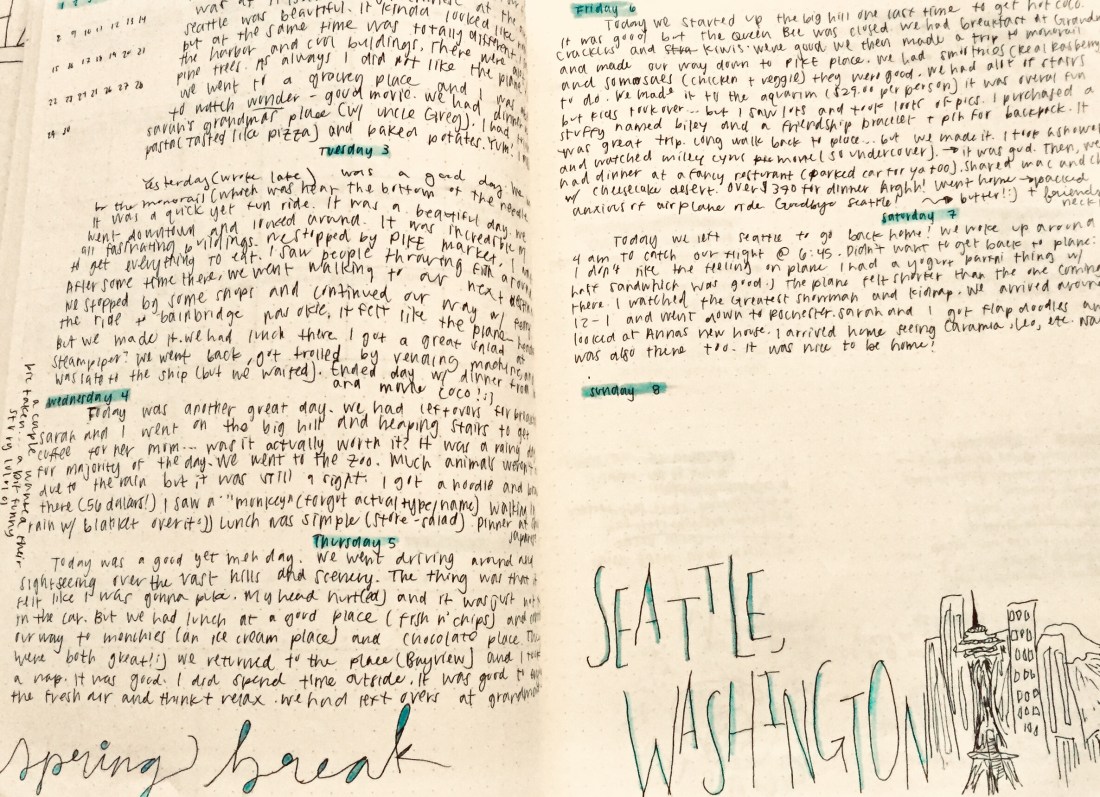 8 9 10 11 12 13 14
15 16 17 18 19 20 21
22 23 24 25 26 27 28
29 30
was at
at the
seattle was beautiful. It kinda looked like
but at the same time was totally different
the harbor and cool buildings. There were
pine trees. As always I did not like the plane
we went to a grocery place and I was
to watch wonder - good movie. we had dinner
sarah's grandmas place (w/ uncle Greg). I had
pasta( Tasted like pizza) and baked potatoes. Yum!
Tuesday 3
Yesterday (wrote late) was a good day. We
the monorail (which was near the bottom of the needle
It was a quick yet fun ride. It was a beautiful day. we
went downtown and looked around. It was incredible
all fascinating buildings. We stopped by PIKE market. I
to get everything to eat. I saw people throwing fish around
After some time there, we went walking to our next
we stopped by some shops and continued our way w/ ferry
the ride to bainbridge was okie, it felt like the plane
But we made it. we had lunch there I got a great salad at
steampiper? we went back, got trolled by vending machine
was late to the ship (but we waited). Ended day w/ dinner from
and movie coco! :)
wednesday 4
Today was another great day. we had leftovers for
sarah and I went on the big hill and heaping stairs to get
coffee for her mom... was it actually worth it? It was a rainy
for majority of the day. We went to the zoo. Much animals weren't
due to the rain but it was still a sight. I got a noodle and
there (50 dollars!) I saw a "monkey" (forgot actual type/name) walking in
rain w/ blanket over it :)) Lunch was simple (store-salad) Dinner at
Thursday 5
Today was a good yet meh day. We went driving around and
sightseeing over the vast hills and scenery. The thing was that I
felt like I was gonna puke. My head hurt(ed) and it was just not
in the car. But we had lunch at a good place (fish n' chips) and
our way to monchies (an ice cream place) and chocolate place
were both great! :) we returned to the place (Bayview) and I took
a nap. It was good. I did spend time outside. It was good to
the fresh air and think + relax. we had left overs at grandmas
spring break
a couple wanted their
pic taken... a lot funny
story lol
Friday 6
Today we started up the big hill one last time to get hot coco.
It was good but the Queen Bee was closed. we had breakfast at Grandmas
crackers and kiwis. were good we then made a trip to monorail
and made our way down to PIKE place. we had smoothies (real rasberry
and somosaes (chicken + veggie) they were good. We had alot of stairs
to do. We made it to the aquarium ($29.00 per person) it was overal fun
but kids took over... but I saw lots and took lots of pics. I purchased a
stuffy named biley and a friendship bracelet + pin for backpack. It
was great trip. Long walk back to place... but we made it. I took a shower
and watched miley cyrus movie (so undercover). → it was gud. Then, we
had dinner at a fancy resturant (parked car for ya too). Shared mac and ch
w/ cheesecake desert. over $390 for dinner Arghh! went home → packed
anxious of airplane ride Goodbye seattle! → butter! :) + friends
neck
Saturday 7
Today we left seattle to go back home! we woke up around
4 am to catch our flight @ 6:45. Didn't want to get back to plane:
I don't like the feeling on plane I had a yogurt parfai thing w/
half sandwhich was good. :) the plane felt shorter than the one coming
there. I watched the Greatest Showman and kidnap. We arrived around
12-1 and went down to Rochester. sarah and I got flap doodles and
looked at Annas new house. I arrived home seeing Caramia, Leo, etc.
was also there too. It was nice to be home!
sunday 8
SEATTLE,
WASHINGTON